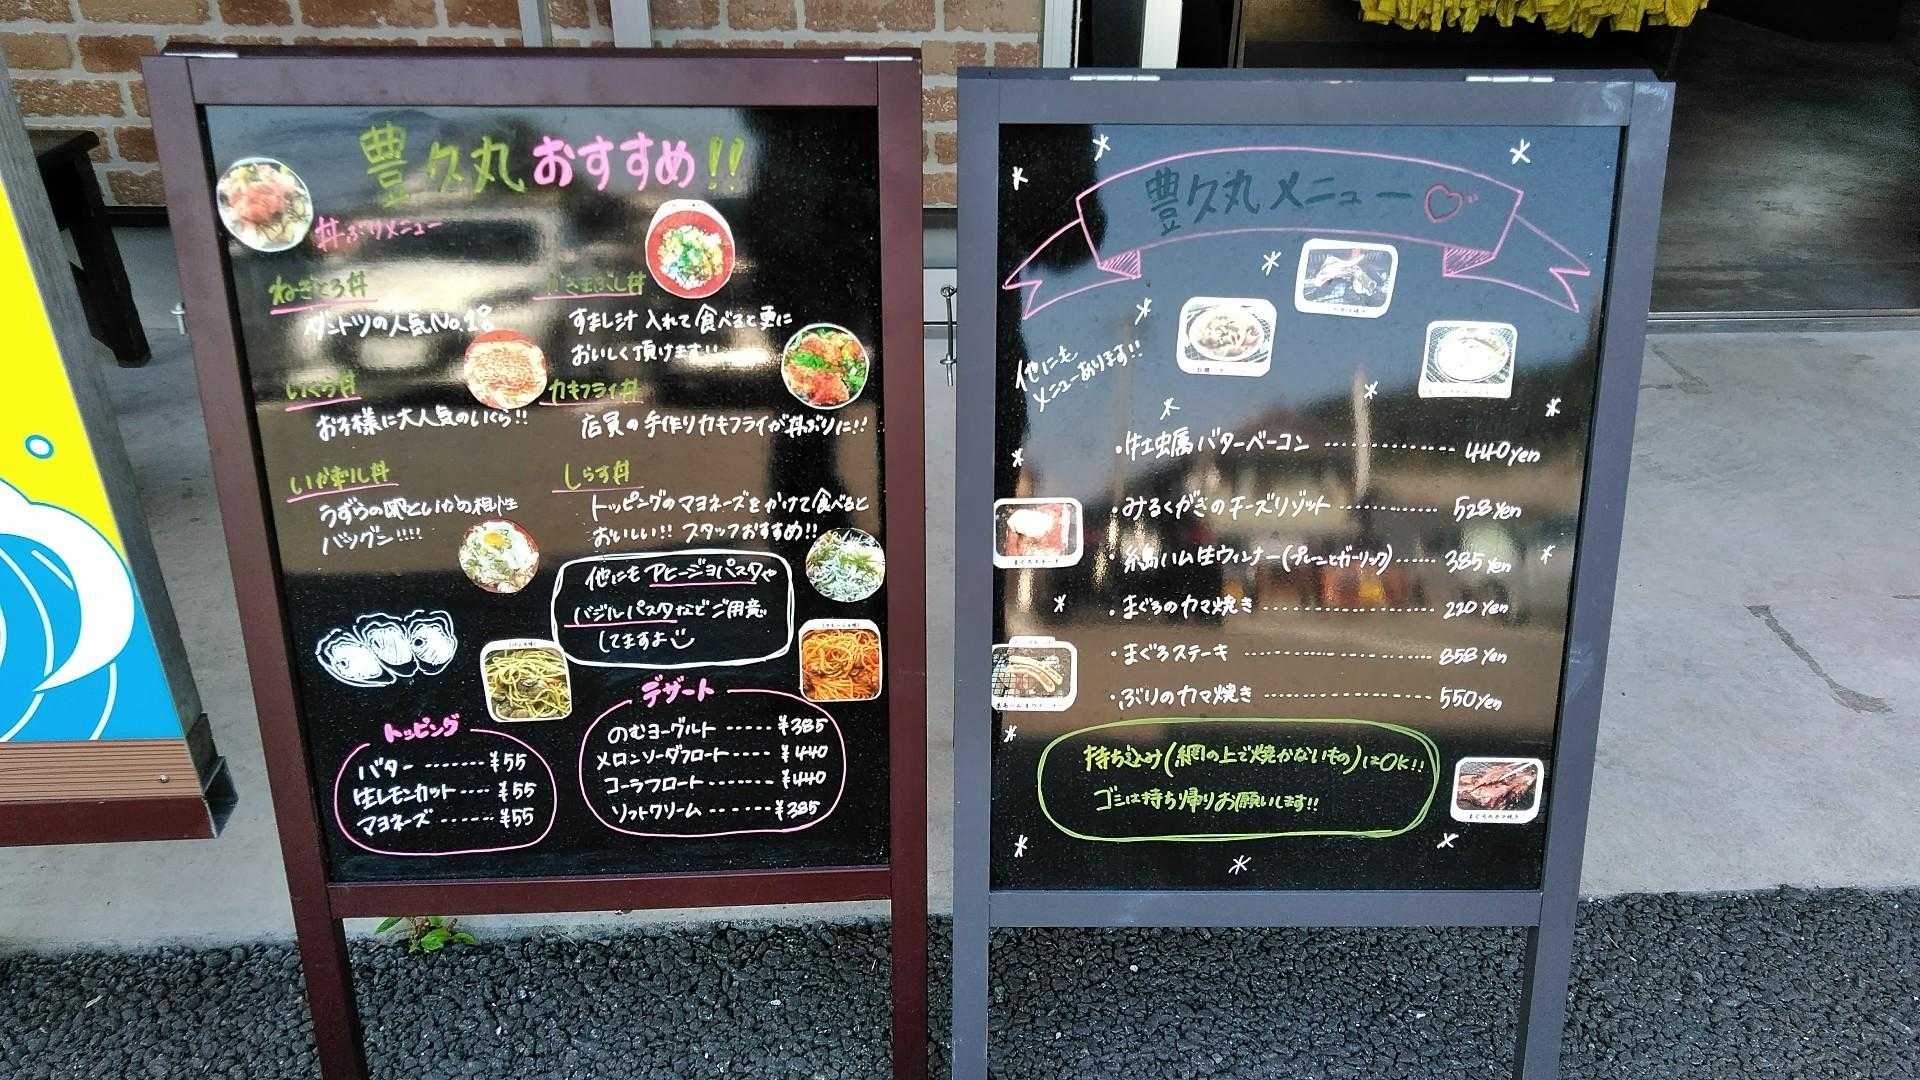 豊久丸おすすめ!!
丼ぶりメニュー
ねぎとろ丼
ダントツの人気No.1!!
すまし汁 入れて食べると更に
おいしく頂けます!!
いくら丼
お子様に大人気のいくら!!
カキフライ丼
店員の手作りカキフライが丼ぶりに!!
うずらの卵といかの相性
バツグン!!!!
しらす丼
トッピングのマヨネーズをかけて食べると
おいしい!! スタッフおすすめ!!
他にもアヒージョパスタや
バジルパスタなどご用意
してますよ
トッピング
バター ------- ¥55
生レモンカット ---- ¥55
マヨネーズ ------ ¥55
デザート
のむヨーグルト ------ ¥385
メロンソーダフロート ----- ¥440
コーラフロート ------- ¥440
ソフトクリーム ------- ¥385
豊久丸メニュー
他にも
メニューあります!!
・牡蛎バターベーコン ------------- 440yen
・みるくがきのチーズリゾット ---------- 528yen
・糸島ハム生ウィンナー(プレーンとガーリック) ------ 385yen
・まぐろのカマ焼き ----------------- 220yen
・まぐろステーキ ------------------ 858yen
・ぶりのカマ焼き ----------------- 550yen
持ち込み(網の上で焼かないもの)はOK!!
ゴミは持ち帰りお願いします!!